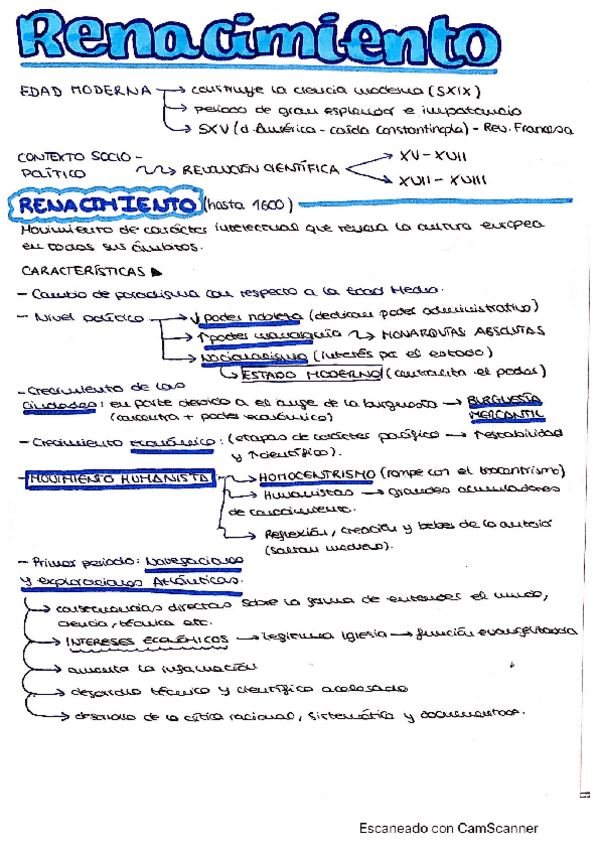 Renacimiento
EDAD MODERNA → construye la ciencia moderna (SXIX)
→ periodo de gran esplendor e importancia
→ SXV (d. América - caída Constantinopla) - Rev. Francesa
CONTEXTO SOCIO-
POLÍTICO → REVOLUCIÓN CIENTÍFICA → XV-XVII
→ XVII - XVIII
RENACIMIENTO (hasta 1600)
Movimiento de carácter intelectual que revisa la cultura europea
en todos sus ámbitos.
CARACTERÍSTICAS ▶
- Cambio de paradigma con respecto a la Edad Media.
- Nivel político → ↓ poder nobleza (dedican poder administrativo)
→ ↑ poder monarquía → MONARQUÍAS ABSOLUTAS
→ Nacionalismo (interés por el estado)
→ ESTADO MODERNO (centraliza el poder)
- Crecimiento de las
ciudades: en parte debido a el auge de la burguesía → BURGUESÍA
(concentra + poder económico) MERCANTIL
- Crecimiento económico: (etapas de carácter pacífico → ↑ estabilidad
y ↑ científico).
- MOVIMIENTO HUMANISTA → HOMOCENTRISMO (rompe con el teocentrismo)
→ Humanistas → grandes acumuladores
de conocimiento.
→ Reflexión, creación y beber de lo anterior
(saltan medievo).
- Primer periodo: Navegaciones
y exploraciones Atlánticas.
→ consecuencias directas sobre la forma de entender el mundo,
ciencia, técnica etc.
→ INTERESES ECONÓMICOS → legitima iglesia → función evangelizadora
→ aumenta la información
→ desarrollo técnico y científico acelerado
→ desarrollo de la crítica racional, sistemática y documentada.
Escaneado con CamScanner